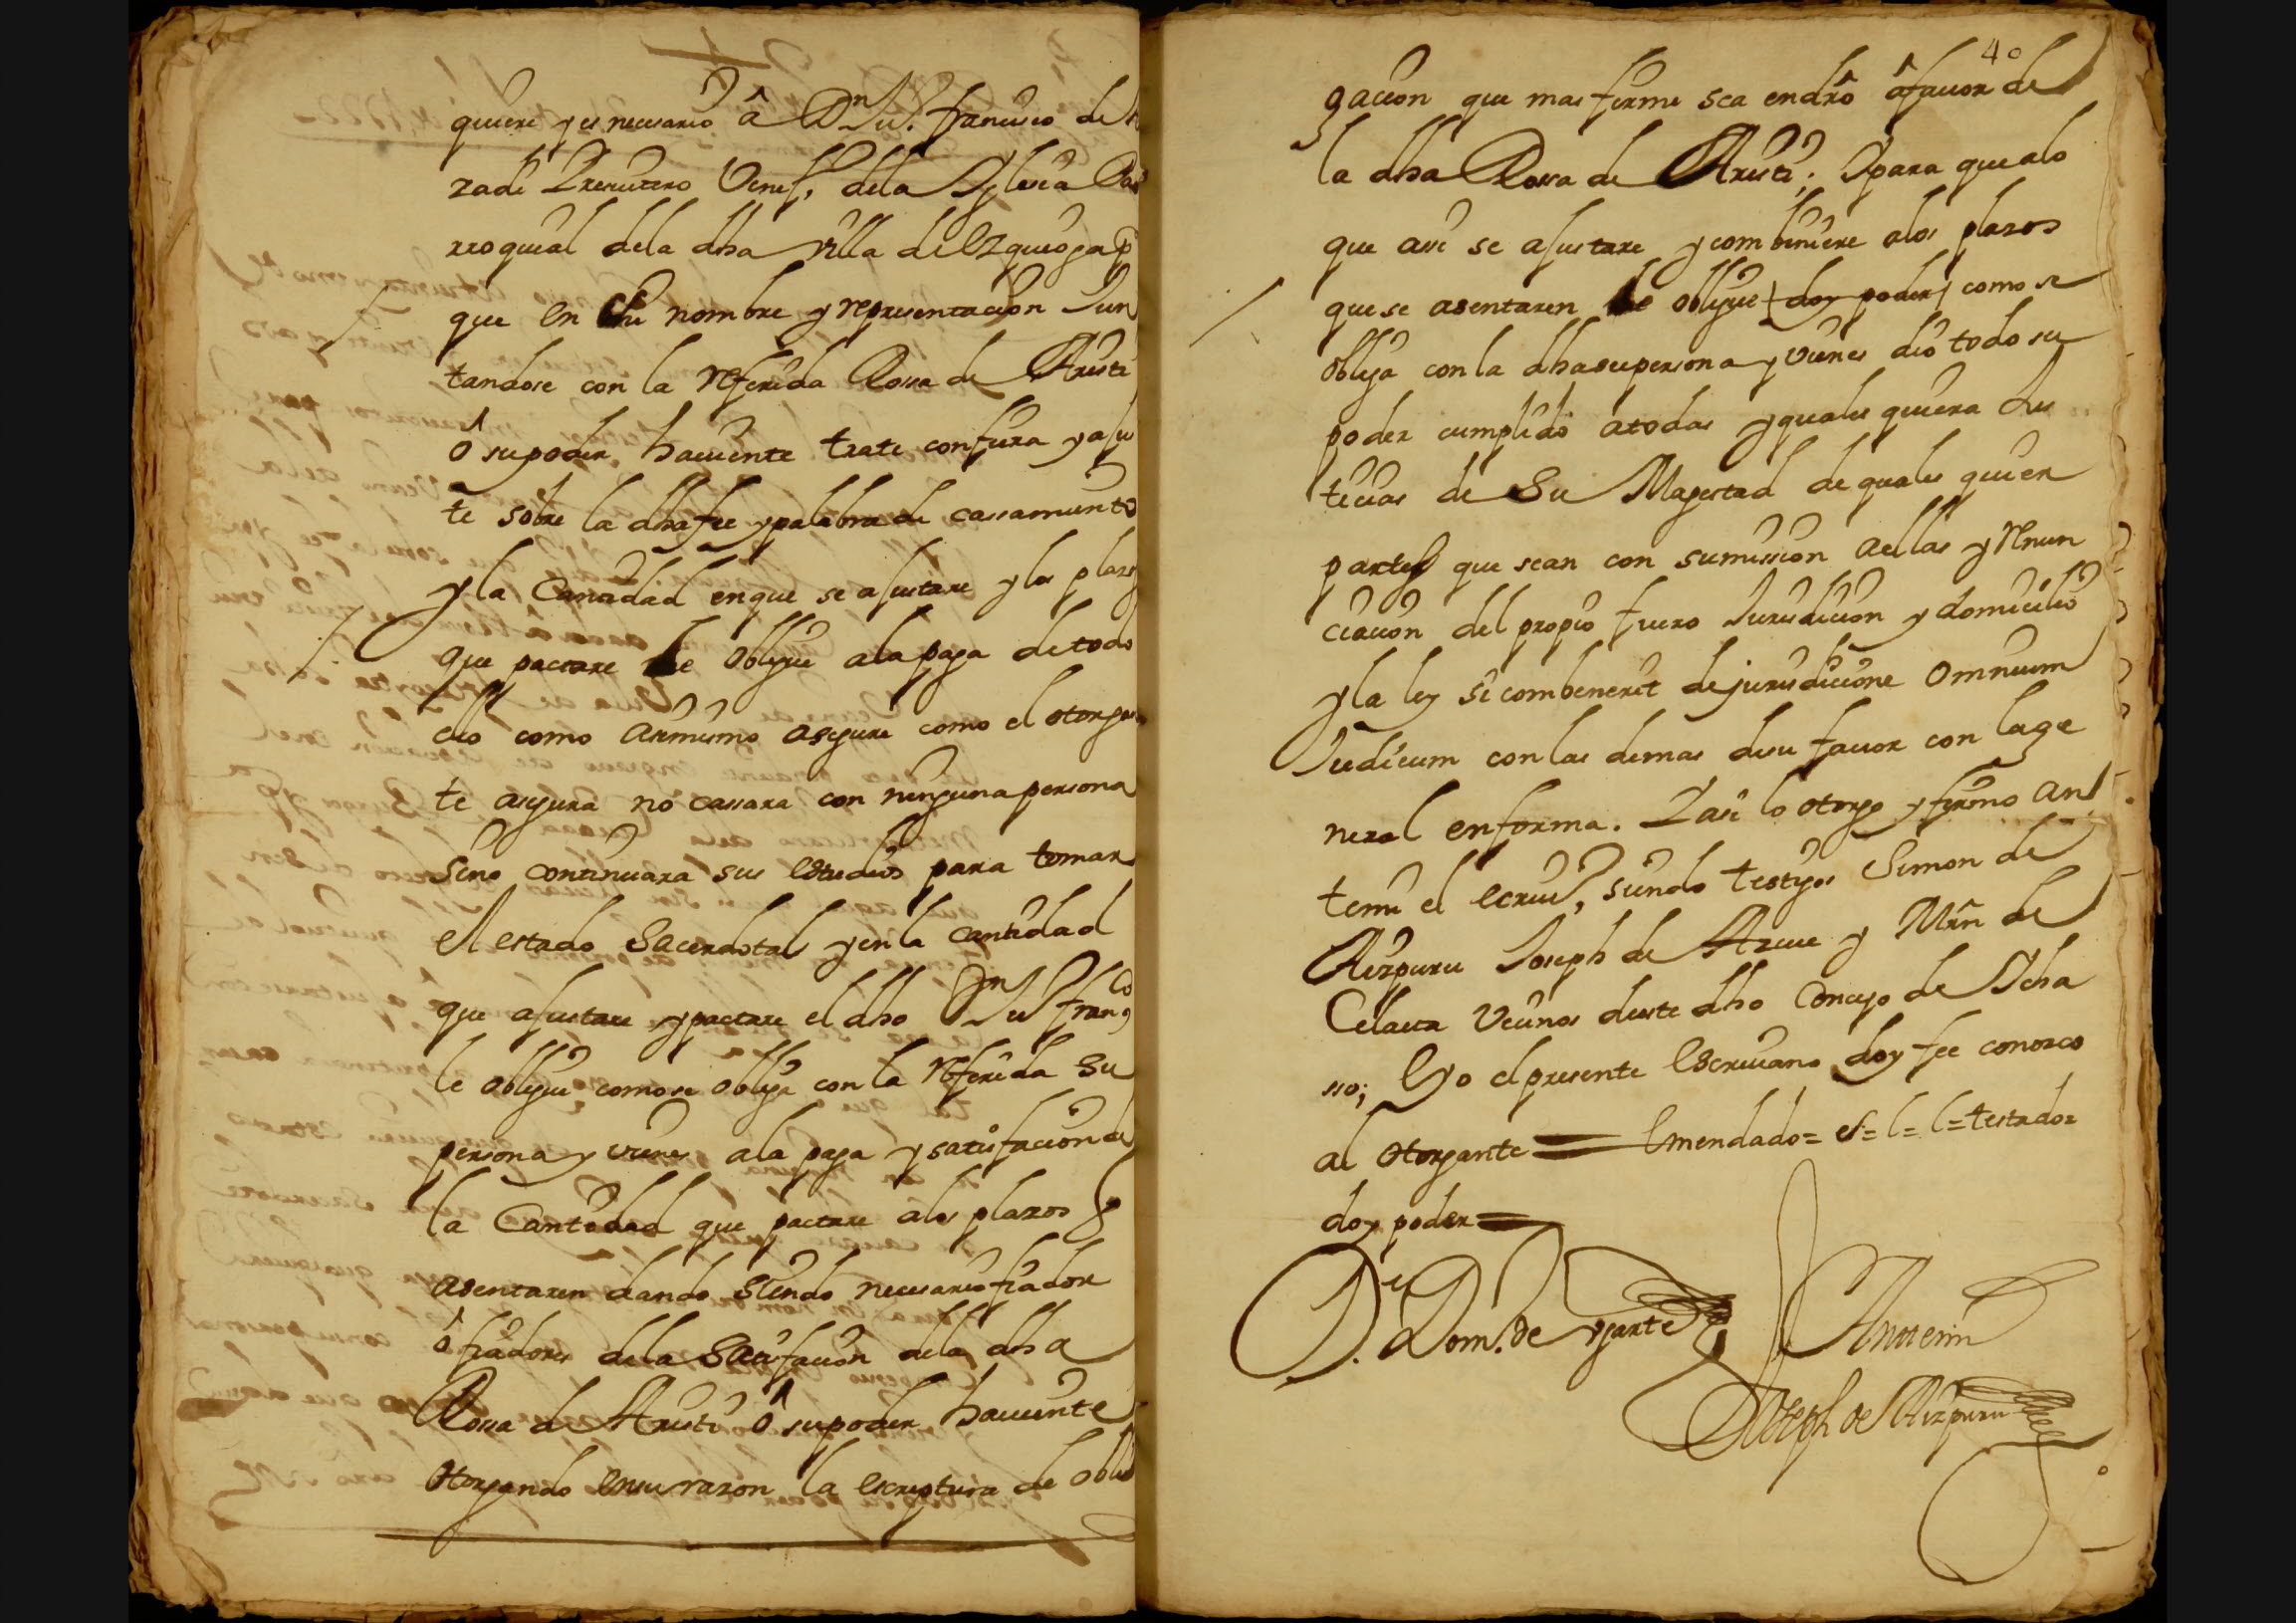 quiere y es necesario â Dn Ju. francisco de
zadi Presuitero Venef. dela Yglesia Par
rroquial dela dha villa de Ezquioga p
que en su nombre y representacion Jun
tandose con la referida Rossa de Aristi
ô su poder hauiente trate confiera y ajus
te sobre la dha fee y palabra de cassamiento
y la Cantidad en que se ajustare y los plazos
que pactare le obligue ala paga de todo
ello como asimismo asegure como el otorgan
te asegura no cassara con ninguna persona
sino continuara sus estudios para tomar
el estado Sacerdotal y en la cantidad
que ajustare y pactare el dho Dn Ju franco
le obligue como se obliga con la referida su
persona y vienes ala paga y satisfacion de
la Cantidad que pactare alos plazos q
asentaren dando siendo necesario fiador
ô fiadores dela Satisfacion dela dha
Rossa de Aristi ô su poder hauiente
otorgando en su razon la escriptura de obli
40
gacion que mas firme sea en dro â fauor de
la dha Rossa de Aristi; Y para que alo
que asi se ajustare y combiniere alos plazos
que se asentaren le obligue doy poder como se
obliga con la dha su persona y vienes dio todo su
poder cumplido a todas y quales quiera Jus
ticias de Su Magestad de quales quier
partes que sean con sumission a ellas y renun
ciacion del propio fuero Jurisdicion y domicilio
y la ley si combenerit de jurisdicione omnium
Judicum con las demas de su fauor con la ge
neral en forma. Y asi lo otorgo y firmo an
temi el escriu.o siendo testigos Simon de
Aizpuru Joseph de Azcue y Mrn de
Celaeta Vecinos deste dho Concejo de Ycha
sso; Eyo el presente Escriuano doy fee conozco
al otorgante = Emendado= es= l= l= testado=
doy poder=
D. Dom. de ygarte
Antemi
Joseph de Aizpuru